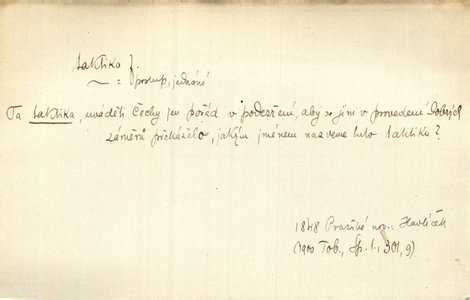 taktika f.
~ = postup, jednání
Ta taktika, uváděti Čechy jen pořád v podezření, aby se jim v provedení dobrých
záměrů překáželo, jakým jménem nazveme tuto taktiku?
1848 Pražské nov., Havlíček
(1900 Tob., Sp. 1., 301, 9)